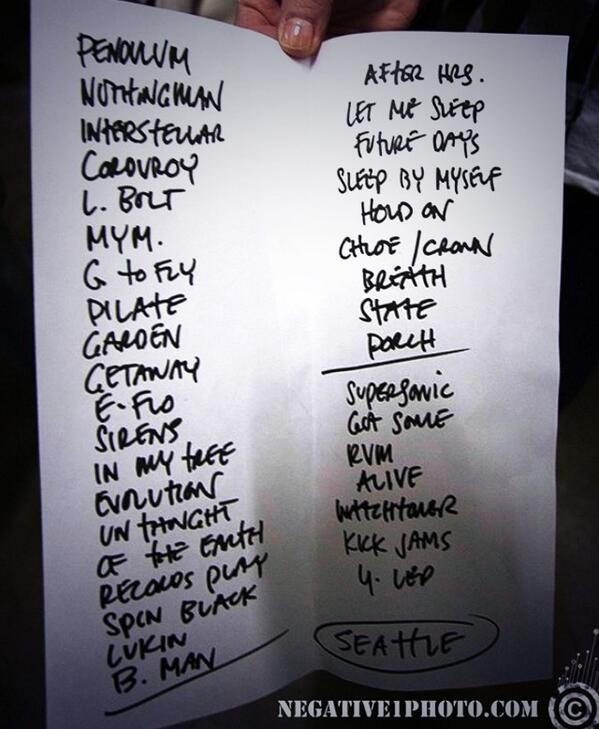 PENDULUM
NOTHINGMAN
INTERSTELLAR
CORDUROY
L. BOLT
MYM.
G to FLY
DILATE
GARDEN
GETAWAY
E-FLO
SIRENS
IN MY TREE
EVOLUTION
UNTHNGHT
OF THE EARTH
RECORDS PLAY
SPIN BLACK
LUKIN
B. MAN
AFTER HRS.
LET ME SLEEP
FUTURE DAYS
SLEEP BY MYSELF
HOLD ON
CHLOE / CROWN
BREATH
STATE
PORCH
SUPERSONIC
GOT SOME
RVM
ALIVE
WATCHTOWER
KICK JAMS
Y. LED
SEATTLE
NEGATIVE1PHOTO.COM ©